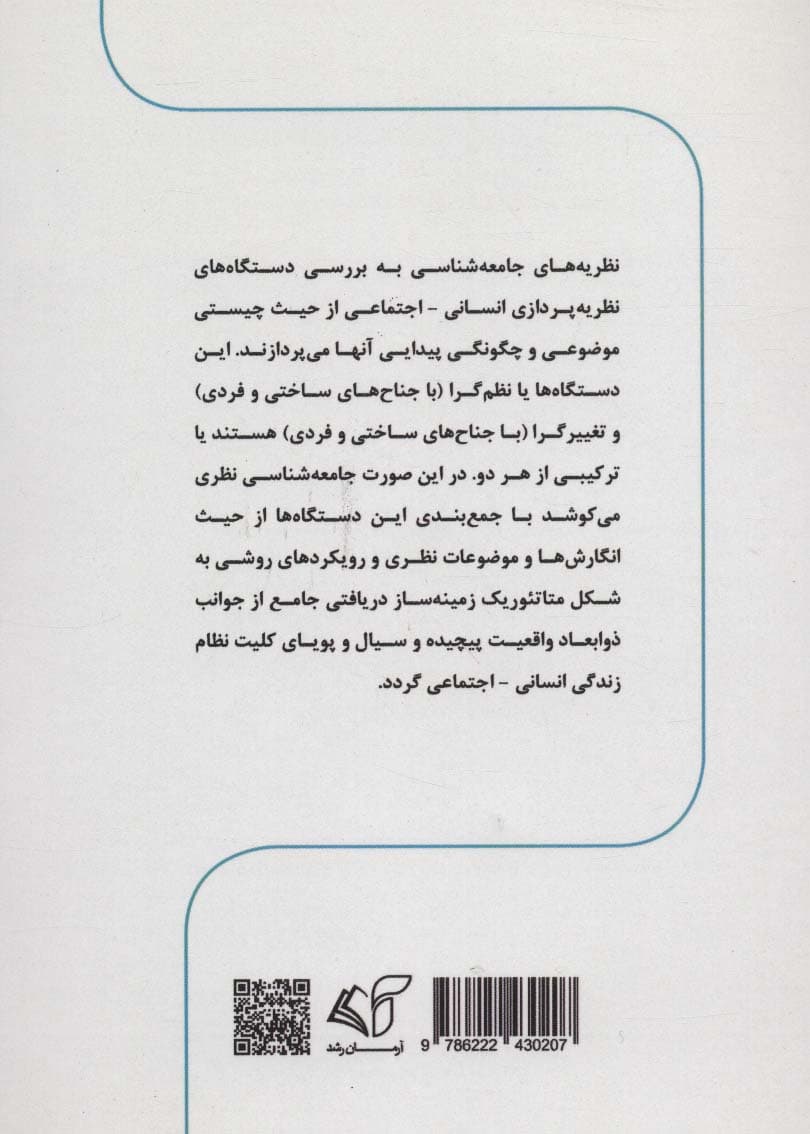 نظریه‌های جامعه‌شناسی به بررسی دستگاه‌های
نظریه‌پردازی انسانی - اجتماعی از حیث چیستی
موضوعی و چگونگی پیدایی آنها می‌پردازند. این
دستگاه‌ها یا نظم‌گرا (با جناح‌های ساختی و فردی)
و تغییرگرا (با جناح‌های ساختی و فردی) هستند یا
ترکیبی از هر دو. در این صورت جامعه‌شناسی نظری
می‌کوشد با جمع‌بندی این دستگاه‌ها از حیث
انگارش‌ها و موضوعات نظری و رویکردهای روشی به
شکل متاتئوریک زمینه‌ساز دریافتی جامع از جوانب
ذوابعاد واقعیت پیچیده و سیال و پویای کلیت نظام
زندگی انسانی - اجتماعی گردد.
آرمان رشد
9 786222 430207